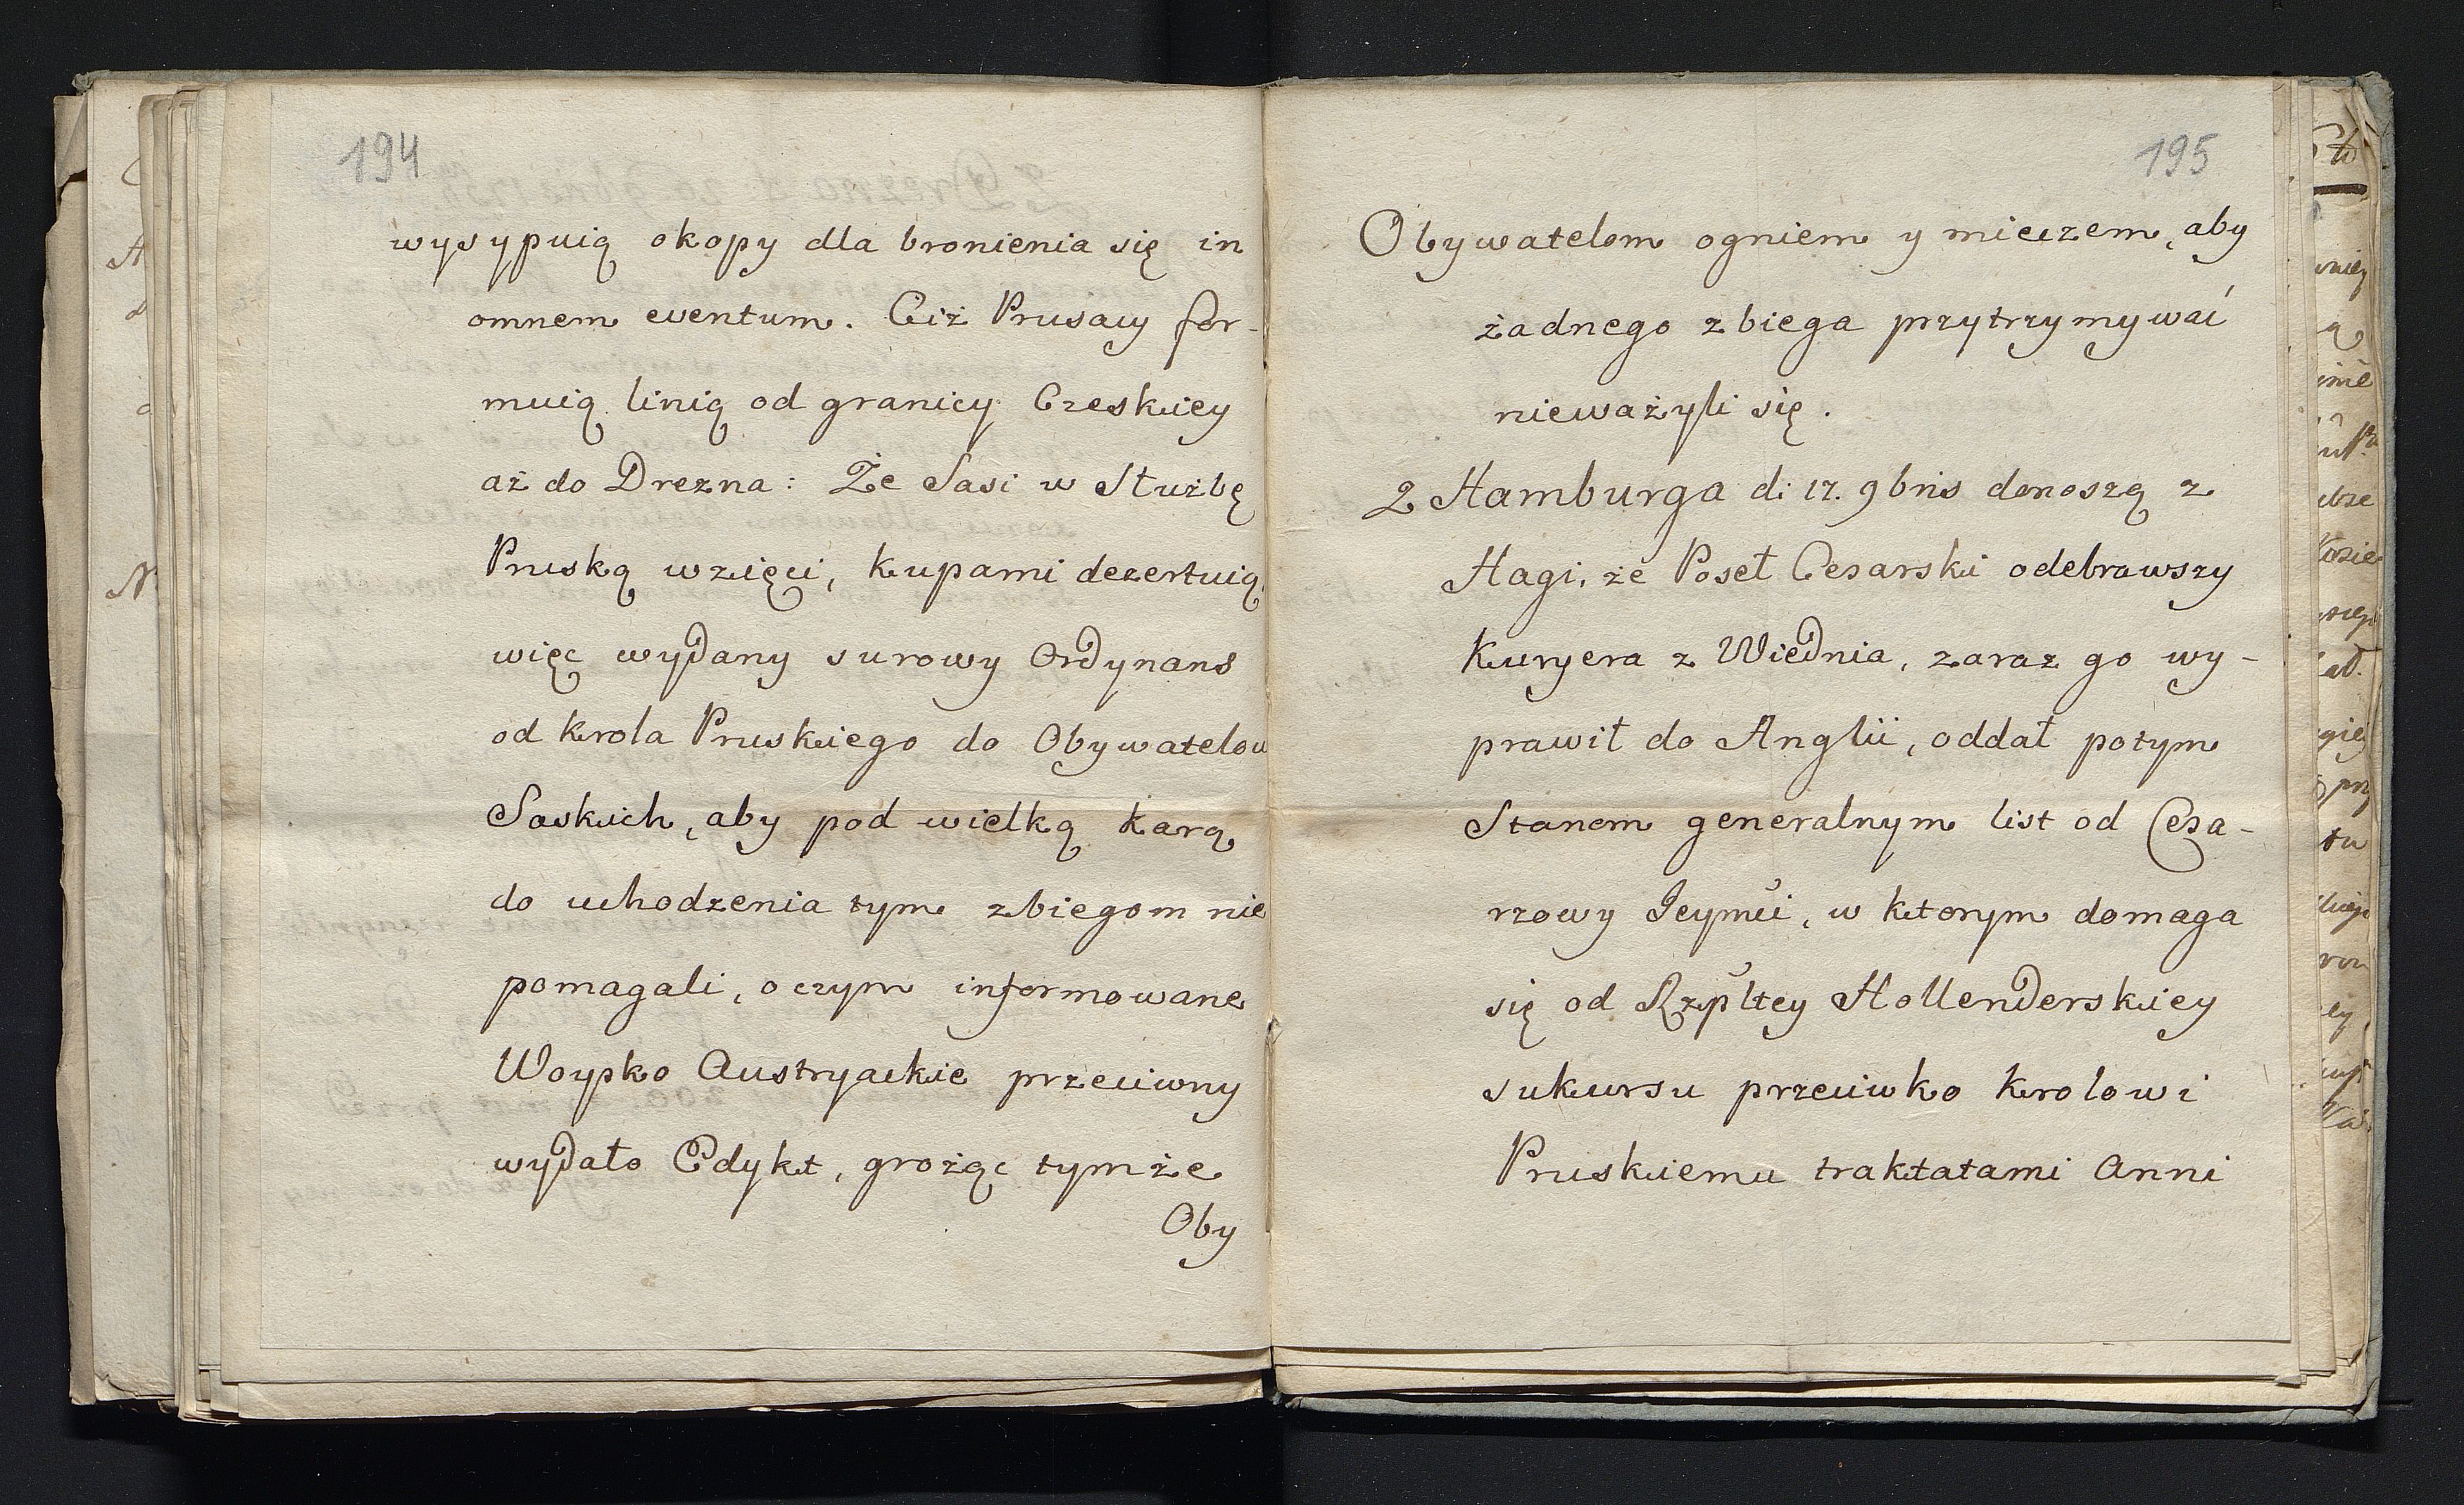 194
wysypuią okopy dla bronienia się in
omnem eventum. Ciż Prusacy for-
muią linią od granicy Czeskiey
aż do Drezna: Że Sasi w Służbę
Pruską wzięci, kupami dezertuią,
więc wydany surowy Ordynans
od Krola Pruskiego do Obywatelow
Saskich, aby pod wielką karą
do uchodzenia tym zbiegom nie
pomagali, o czym informowane
Woysko Austryackie przeciwny
wydało Edykt, grożąc tymże
Oby
195
Obywatelom ogniem y mieczem, aby
żadnego zbiega przytrzymywać
nieważyli się.
Z Hamburga d: 17. 9bris donoszą z
Hagi, że Poseł Cesarski odebrawszy
Kuryera z Wiednia, zaraz go wy-
prawił do Anglii, oddał potym
Stanom generalnym list od Cesa-
rzowy Jeymci, w ktorym domaga
się od Rzpltey Hollenderskiey
sukursu przeciwko Krolowi
Pruskiemu traktatami Anni